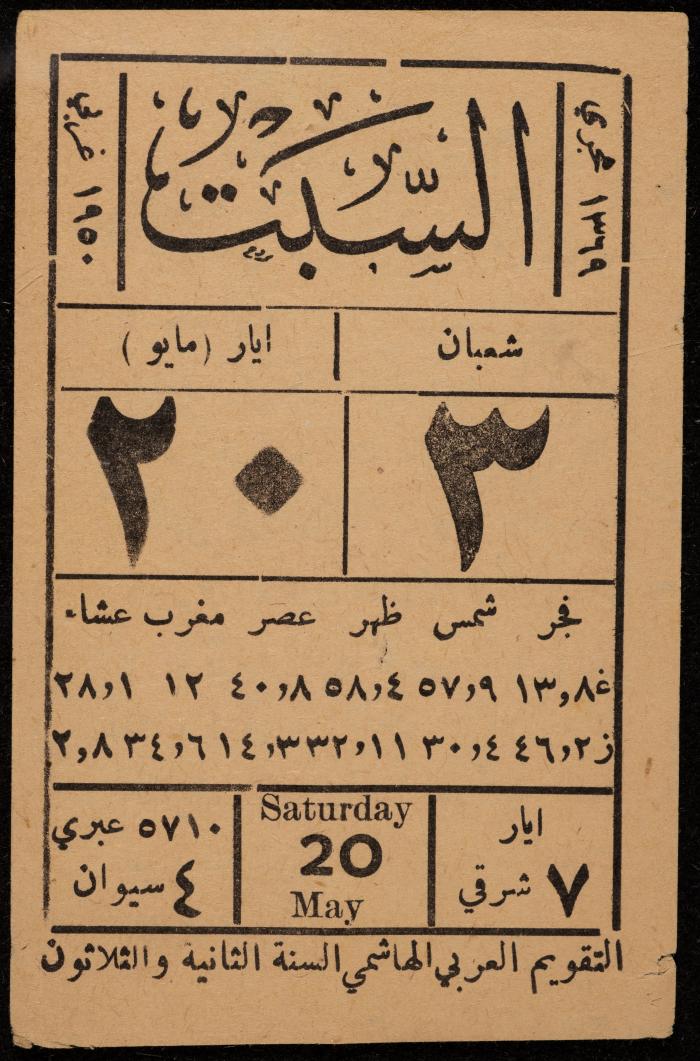 ١٣٦٩ هجري
السَّبت
١٩٥٠ غربي
شعبان
ايار (مايو)
٣
٢٠
فجر شمس ظهر عصر مغرب عشاء
غ ٨,١٣ ٩,٥٧ ٤,٥٨ ٨,٤٠ ١٢ ١,٢٨
ز ٢,٤٦ ٤,٣٠ ١١,٣٢ ٣,١٤ ٦,٣٤ ٨,٢
ايار
٧ شرقي
Saturday
20
May
٥٧١٠ عبري
٤ سيوان
التقويم العربي الهاشمي السنة الثانية والثلاثون